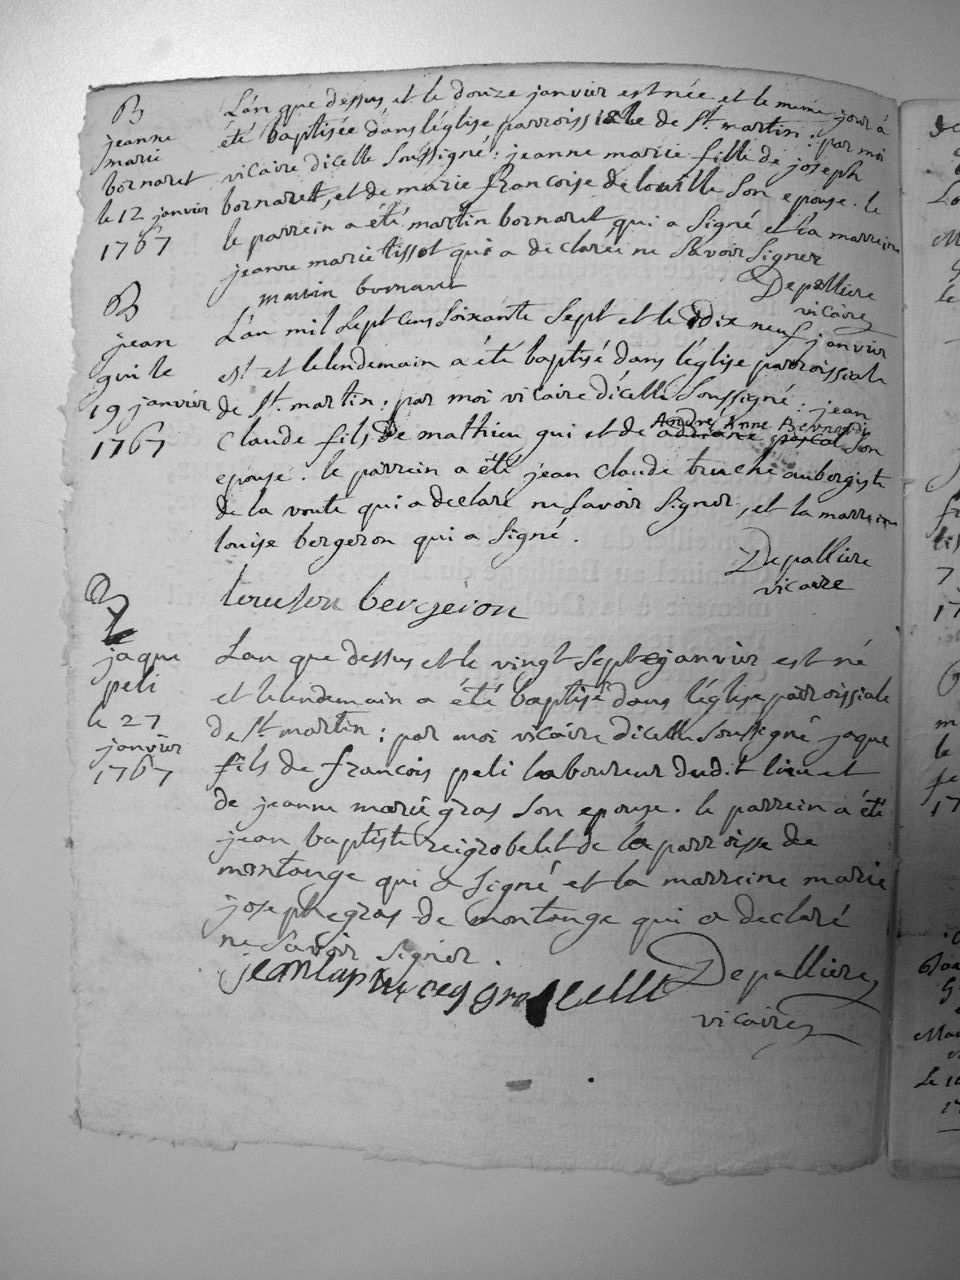 B
jeanne
marie
bornaret
le 12 janvier
1767
L'an que dessus, et le douze janvier est née et le meme jour à
été baptisée dans l'église parroissialle de St. martin : par moi
vicaire dicelle soussigné : jeanne marie fille de joseph
bornaret, et de marie francoise de louille son epouse. le
le parrein a été martin bornaret qui a signé et la marreine
jeanne marie tissot qui a declaré ne savoir signer
martin bornaret
Depalliere
vicaire
B
jean
gui le
19 janvier
1767
L'an mil sept cens soixante sept et le dix neuf janvier
est et le lendemain a été baptisé dans l'église parroissiale
de St. martin : par moi vicaire dicelle soussigné : jean
claude fils de mathieu gui et de André Anne son
epouse. le parrein a été jean claude truche aubergiste
de la voute qui a declaré ne savoir signer, et la marreine
louise bergeron qui a signé.
Depalliere
vicaire
louison bergeron
B
jaque
peli
le 27
janvier
1767
L'an que dessus et le vingt sept janvier est né
et le lendemain a été baptisé dans l'église parroissiale
de St martin : par moi vicaire dicelle soussigné jaque
fils de francois peli laboureur dudit lieu et
de jeanne marie gras son epouse. le parrein a été
jean baptiste reigrobelet de la parroisse de
montange qui a signé et la marreine marie
josephe gras de montange qui a declaré
ne savoir signer.
Depalliere
vicaire